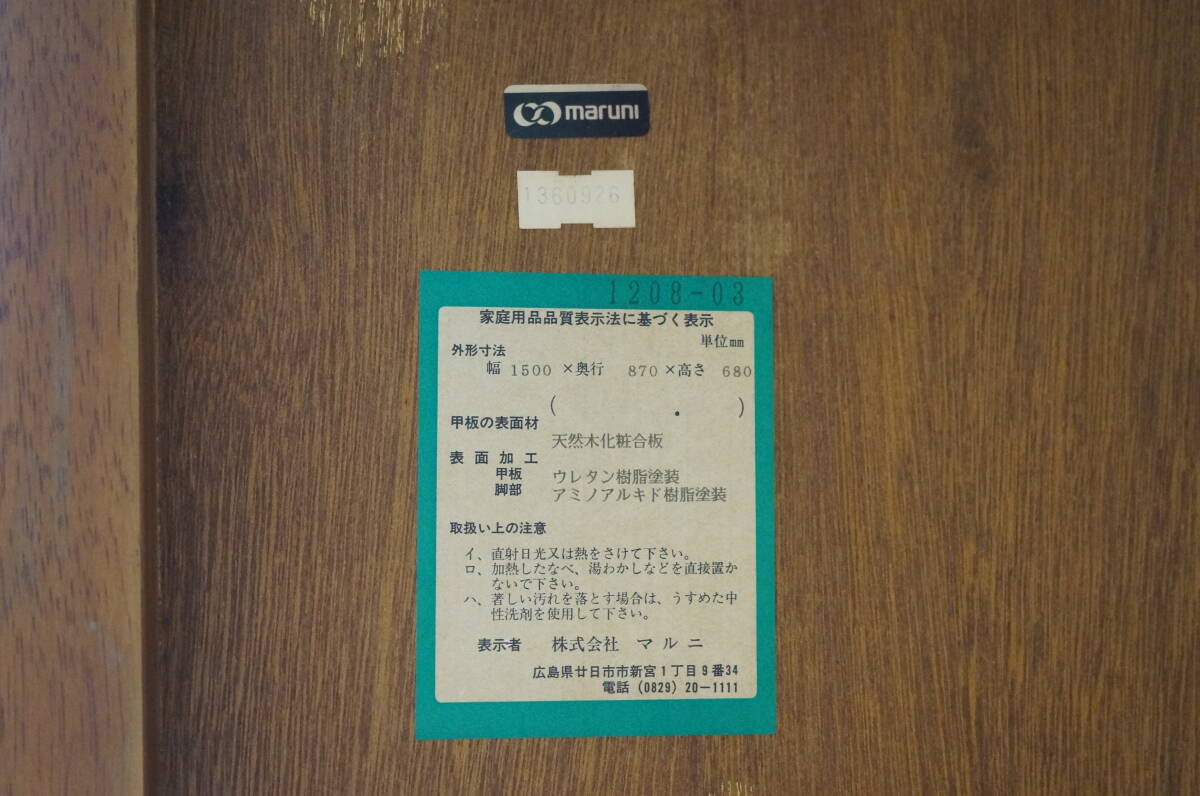 maruni
1360926
1208-03
家庭用品品質表示法に基づく表示
単位mm
外形寸法
幅 1500 ×奥行 870 ×高さ 680
( . )
甲板の表面材
天然木化粧合板
表面加工
甲板 ウレタン樹脂塗装
脚部 アミノアルキド樹脂塗装
取扱い上の注意
イ、直射日光又は熱をさけて下さい。
ロ、加熱したなべ、湯わかしなどを直接置か
ないで下さい。
ハ、著しい汚れを落とす場合は、うすめた中
性洗剤を使用して下さい。
表示者 株式会社 マルニ
広島県廿日市市新宮1丁目9番34
電話 (0829) 20-1111